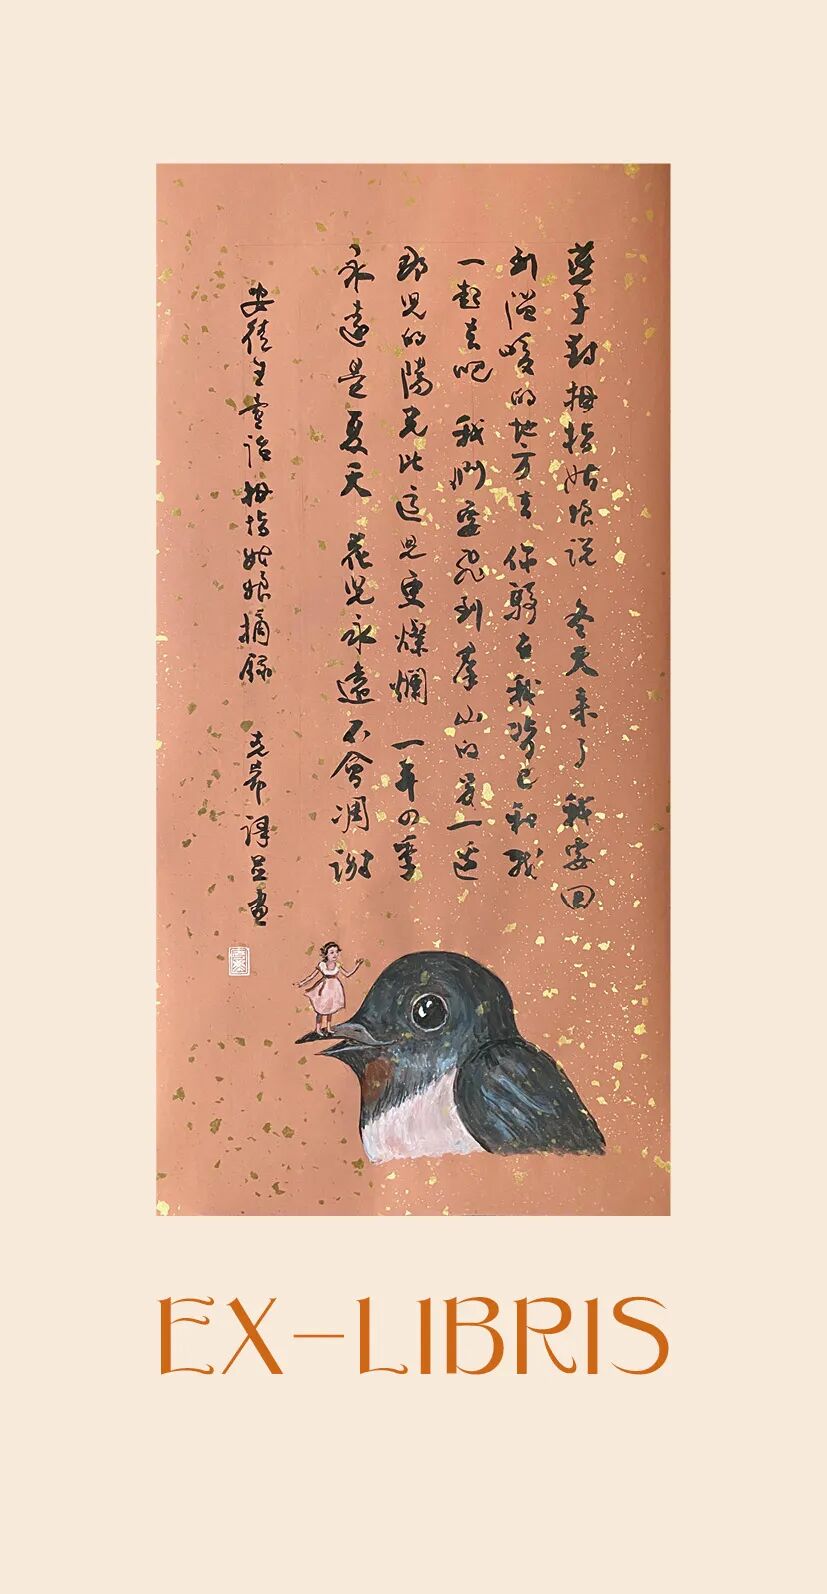 燕子對拇指姑娘说 冬天来了 我要回
到温暖的地方去 你騎在我背上和我
一起去吧 我们要飛到羣山的另一邊
那兒的陽光比這兒更燦爛 一年四季
永遠是夏天 花兒永遠不會凋謝
安徒生童话拇指姑娘摘録 克希譯並畫
EX-LIBRIS